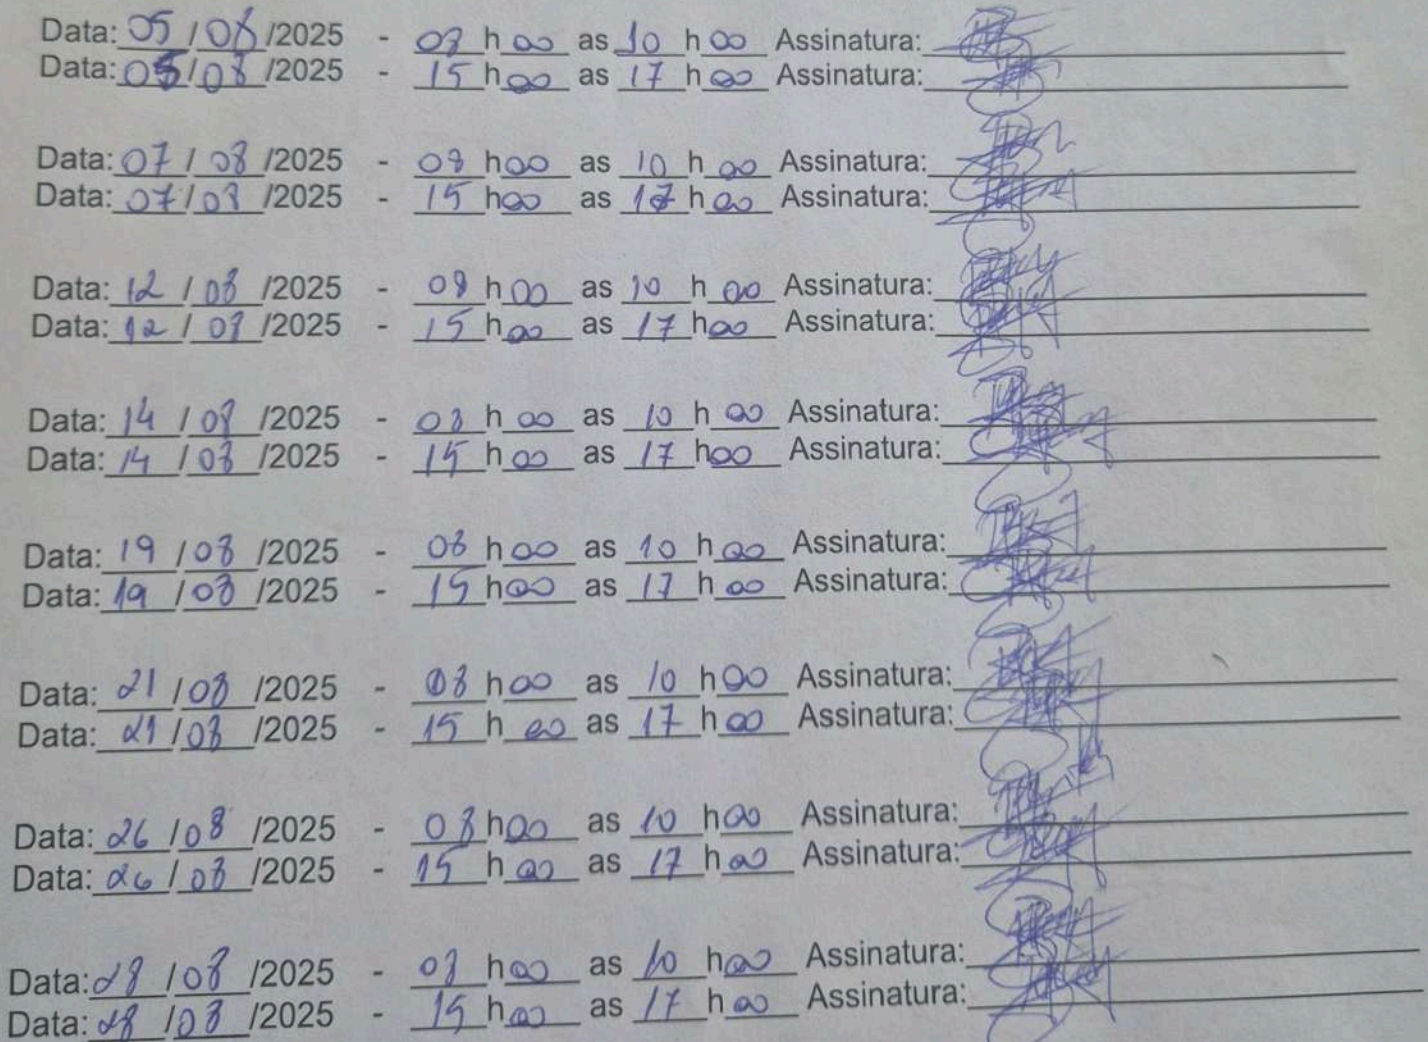 Data: 05/08/2025 - 08 h 00 as 10 h 00 Assinatura:
Data: 05/08/2025 - 15 h 00 as 17 h 00 Assinatura:
Data: 07/08/2025 - 08 h 00 as 10 h 00 Assinatura:
Data: 07/08/2025 - 15 h 00 as 17 h 00 Assinatura:
Data: 12/08/2025 - 08 h 00 as 10 h 00 Assinatura:
Data: 12/08/2025 - 15 h 00 as 17 h 00 Assinatura:
Data: 14/08/2025 - 08 h 00 as 10 h 00 Assinatura:
Data: 14/08/2025 - 15 h 00 as 17 h 00 Assinatura:
Data: 19/08/2025 - 08 h 00 as 10 h 00 Assinatura:
Data: 19/08/2025 - 15 h 00 as 17 h 00 Assinatura:
Data: 21/08/2025 - 08 h 00 as 10 h 00 Assinatura:
Data: 21/08/2025 - 15 h 00 as 17 h 00 Assinatura:
Data: 26/08/2025 - 08 h 00 as 10 h 00 Assinatura:
Data: 26/08/2025 - 15 h 00 as 17 h 00 Assinatura:
Data: 28/08/2025 - 08 h 00 as 10 h 00 Assinatura:
Data: 28/08/2025 - 15 h 00 as 17 h 00 Assinatura: